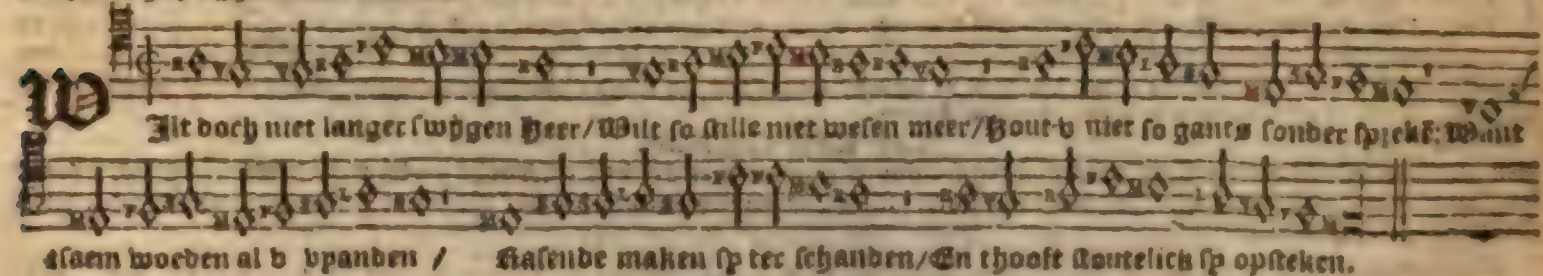 WIlt doch niet langer swijgen Heer/Wilt so stille niet wesen meer/Hout-v niet so gants sonder sprekē: Want
tsaem worden al v vyanden / Rasende maken sy ter schanden/En thooft stoutelick sy opsteken.